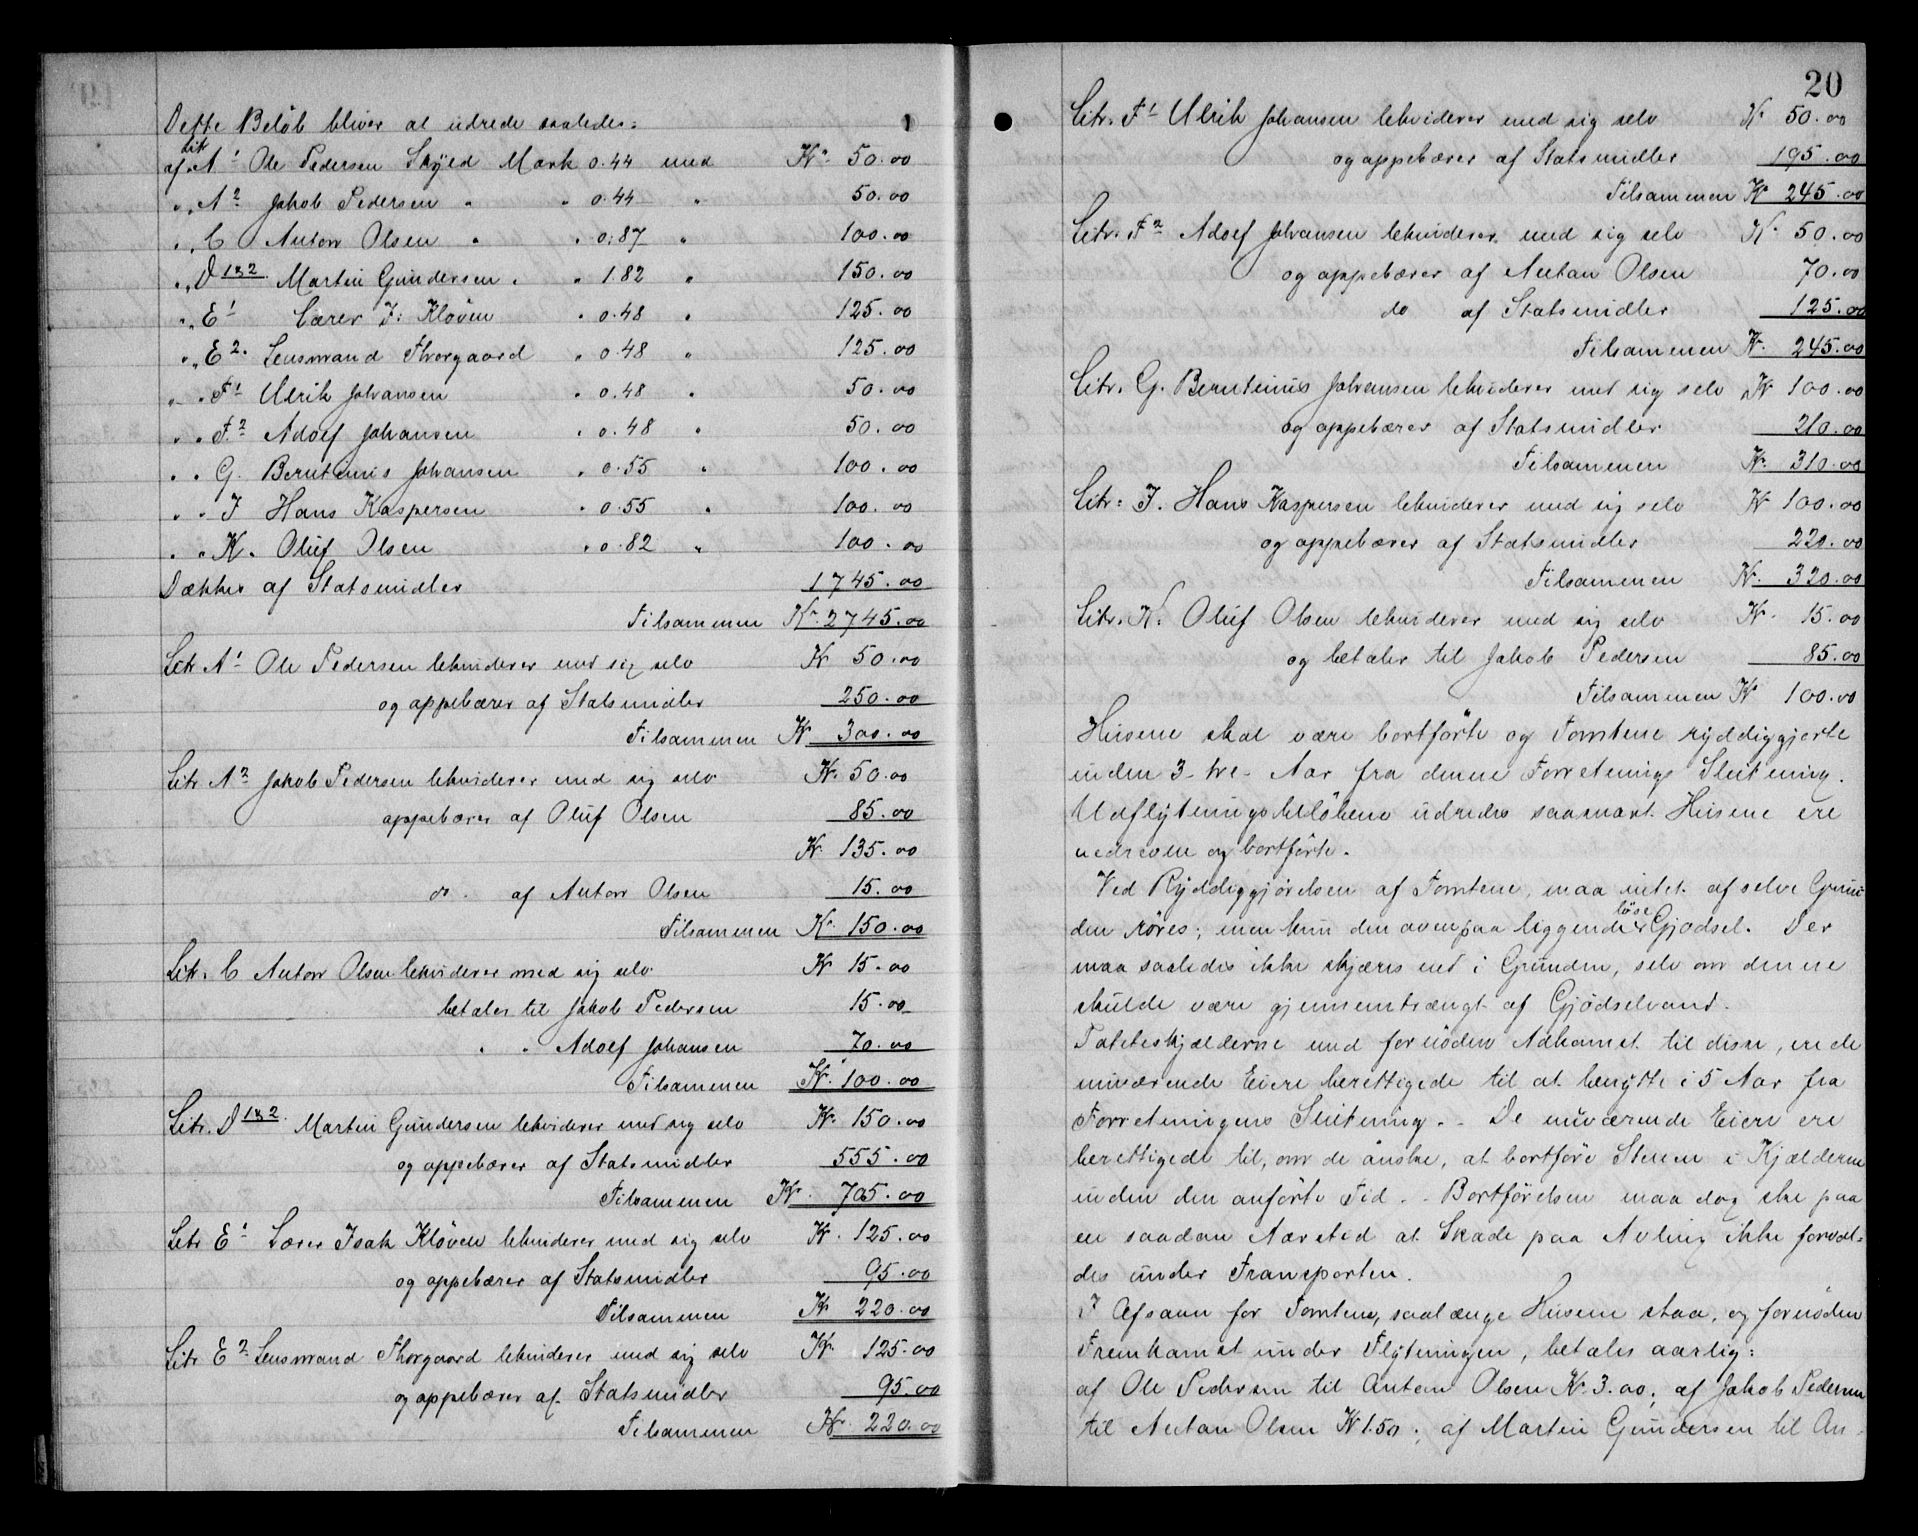 Dette Beløb bliver at udrede saaledes:
af Litr A¹ Ole Pedersen Skyld Mark 0.44 med Kr. 50.00
„ „ A² Jakob Pedersen „ „ 0.44 „ 50.00
„ „ C Anton Olsen „ „ 0.87 „ 100.00
„ „ D 1&2 Martin Gundersen „ „ 1.82 „ 150.00
„ „ E¹ Lærer I. Kløven „ 0.48 „ 125.00
„ „ E² Lensmand Thorgaard „ 0.48 „ 125.00
„ „ F¹ Ulrik Johansen „ 0.48 „ 50.00
„ „ F² Adolf Johansen „ 0.48 „ 50.00
„ „ G. Berntinus Johansen „ 0.55 „ 100.00
„ „ I Hans Kaspersen „ 0.55 „ 100.00
„ „ K. Oluf Olsen „ 0.82 „ 100.00
Dækkes af Statsmidler 1745.00
Tilsammen Kr. 2745.00
Litr A¹ Ole Pedersen lekviderer med sig selv Kr 50.00
og appebærer af Statsmidler 250.00
Tilsammen Kr 300.00
Litr A² Jakob Pedersen lekviderer med sig selv Kr. 50.00
appebærer af Oluf Olsen 85.00
Kr. 135.00
do. af Anton Olsen 15.00
Tilsammen Kr. 150.00
Litr. C Anton Olsen lekviderer med sig selv Kr 15.00
betaler til Jakob Pedersen 15.00
„ „ Adolf Johansen 70.00
Tilsammen Kr. 100.00
Litr. D 1&2. Martin Gundersen lekviderer med sig selv Kr. 150.00
og appebærer af Statsmidler 555.00
Tilsammen Kr. 705.00
Litr E¹ Lærer Isak Kløven lekviderer med sig selv Kr. 125.00
og appebærer af Statsmidler 95.00
Tilsammen Kr 220.00
Litr E² Lensmand Thorgaard lekviderer med sig selv Kr. 125.00
og appebærer af Statsmidler 95.00
Tilsammen Kr. 220.00
20
Litr. F¹ Ulrik Johansen lekviderer med sig selv Kr 50.00
og appebærer af Statsmidler 195.00
Tilsammen Kr 245.00
Litr. F² Adolf Johansen lekviderer med sig selv Kr. 50.00
og appebærer af Anton Olsen 70.00
do af Statsmidler 125.00
Tilsammen Kr. 245.00
Litr. G. Berntinus Johansen lekviderer med sig selv Kr 100.00
og appebærer af Statsmidler 210.00
Tilsammen Kr. 310.00
Litr: I. Hans Kaspersen lekviderer med sig selv Kr 100.00
og appebærer af Statsmidler 220.00
Tilsammen Kr. 320.00
Litr. K. Oluf Olsen lekviderer med sig selv Kr. 15.00
og betaler til Jakob Pedersen 85.00
Tilsammen Kr 100.00
Husene skal være bortførte og Tomtene ryddiggjorte
inden 3 - tre - Aar fra denne Forretnings Slutning.
Udflytningsbeløbene udredes saasnart Husene ere
nedrevne og bortførte.
Ved Ryddiggjørelsen af Tomtene, maa intet af selve Grun-
den røres; men kun den ovenpaa liggende løse Gjødsel. Der
maa saaledes ikke skjæres ned i Grunden, selv om denne
skulde være gjennemtrængt af Gjødselvand.
Poteteskjælderne med fornøden Adkomst til disse, ere de
nuværende Eiere berettigede til at benytte i 5 Aar fra
Forretningens Slutning. - De nuværende Eiere ere
berettigede til, om de ønske, at bortføre Stenen i Kjælderne
inden den anførte Tid. - Bortførelsen maa dog ske paa
en saadan Aarstid at Skade paa Avling ikke forvol-
des under Transporten.
I Afsavn for Tomtene, saalænge Husene staa, og fornøden
Fremkomst under Flytningen, betales aarlig:
af Ole Pedersen til Anton Olsen Kr. 3.00; af Jakob Pedersen
til Anton Olsen Kr 1.50; af Martin Gundersen til An-